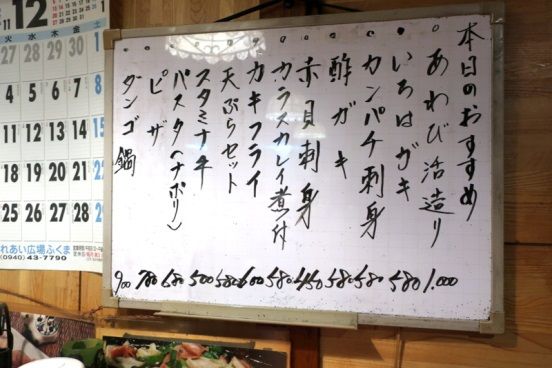 本日のおすすめ
あわび活造り 1.000
いちはガキ 580
カンパチ刺身 580
酢ガキ 580
赤貝刺身 450
カラスカレイ煮付 580
カキフライ 600
天ぷらセット 580
スタミナキ 500
パスタ(ナポリ) 680
ピザ 780
ダンゴ鍋 900
12
火 水 木 金 土
27 28 29 30 1
4 5 6 7 8
11 12 13 14 15
18 19 20 21 22
25 26 27 28 29
れあい広場ふくま
(0940) 43-7790